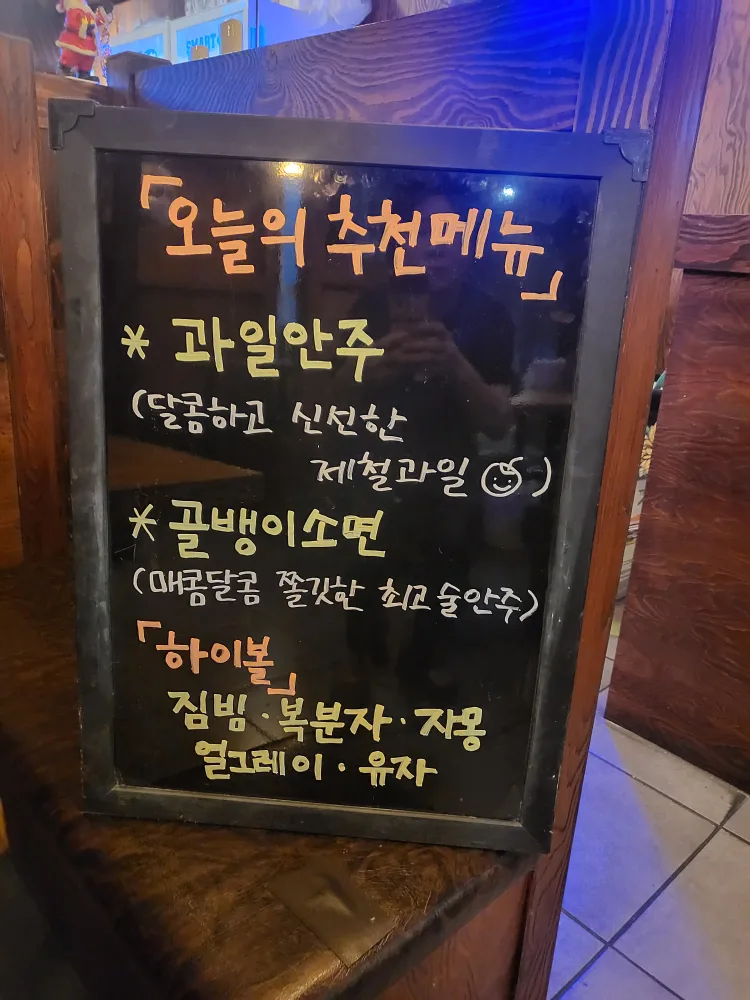 「오늘의 추천메뉴」
* 과일안주
(달콤하고 신선한
제철과일)
* 골뱅이소면
(매콤달콤 쫄깃한 최고 술안주)
「하이볼」
짐빔 · 복분자 · 자몽
얼그레이 · 유자